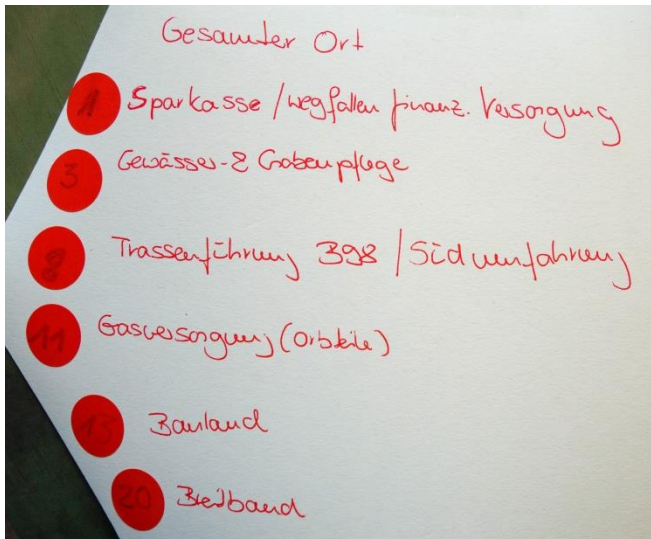 Gesamter Ort
1 Sparkasse / wegfallen finanz. Versorgung
3 Gewässer- & Grabenpflege
8 Trassenführung 398 / Südumfahrung
11 Gasversorgung (Ortsteile)
13 Bauland
20 Breitband